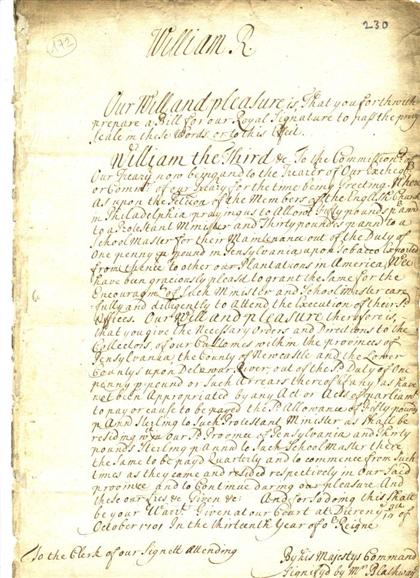 172
230
William R
Our Will and pleasure is, That you forthwith
prepare a Bill for our Royal Signature to pass the privy
seale in these Words, or to this Effect.
William the Third &c. To the Commissrs. of
Our Treary now being and to the Treater of Our Excheqr
or Commrs. of our Treary for the time being Greeting. Whereas
as upon the Petition of the Members of the English Church
in Philadelphia praying us to Allow Fifty pounds p ann
to a Protestant Minister and Thirty pounds p ann to a
School Master for their Maintenance out of the Duty of
One penny p pound in Pensylvania upon Tobacco Exported
from thence to other our Plantations in America, Wee
have been graciously pleas'd to grant the Same for the
Encouragmt. of Such Minister and School Master care
fully and diligently to attend the Execution of their sd.
Offices. Our Will and pleasure therefore is,
that you give the Necessary Orders and Directions to the
Collectors, of our Customes within the provinces of
Pensylvania, the County of Newcastle and the Lower
Countys upon Delewar River, out of the sd. Duty of One
penny p pound or Such Arrears thereof if any, as have
not been Appropriated by any Act or Acts of parliamt.
to pay or cause to be payed the sd. Allowance of Fifty pound
p Ann Sterling to Such Protestant Minister as Shall be
residing wth. in Our sd. Province of Pensylvania and Thirty
pounds Sterling p Annd to Such School Master there
the Same to be payd quarterly and to commence from Such
times as they came and resided respectively in Our Said
province and to Continue during our pleasure And
these our Lres &c Given &c: And for so doing this Shall
be your Warrt. Given at our Court at Dieren ye
October 1701 In the thirteenth Year of or. Reigne
To the Clerk of our Signett attending
By his Majestys Command
Signefyd by Mr. Blathwayt